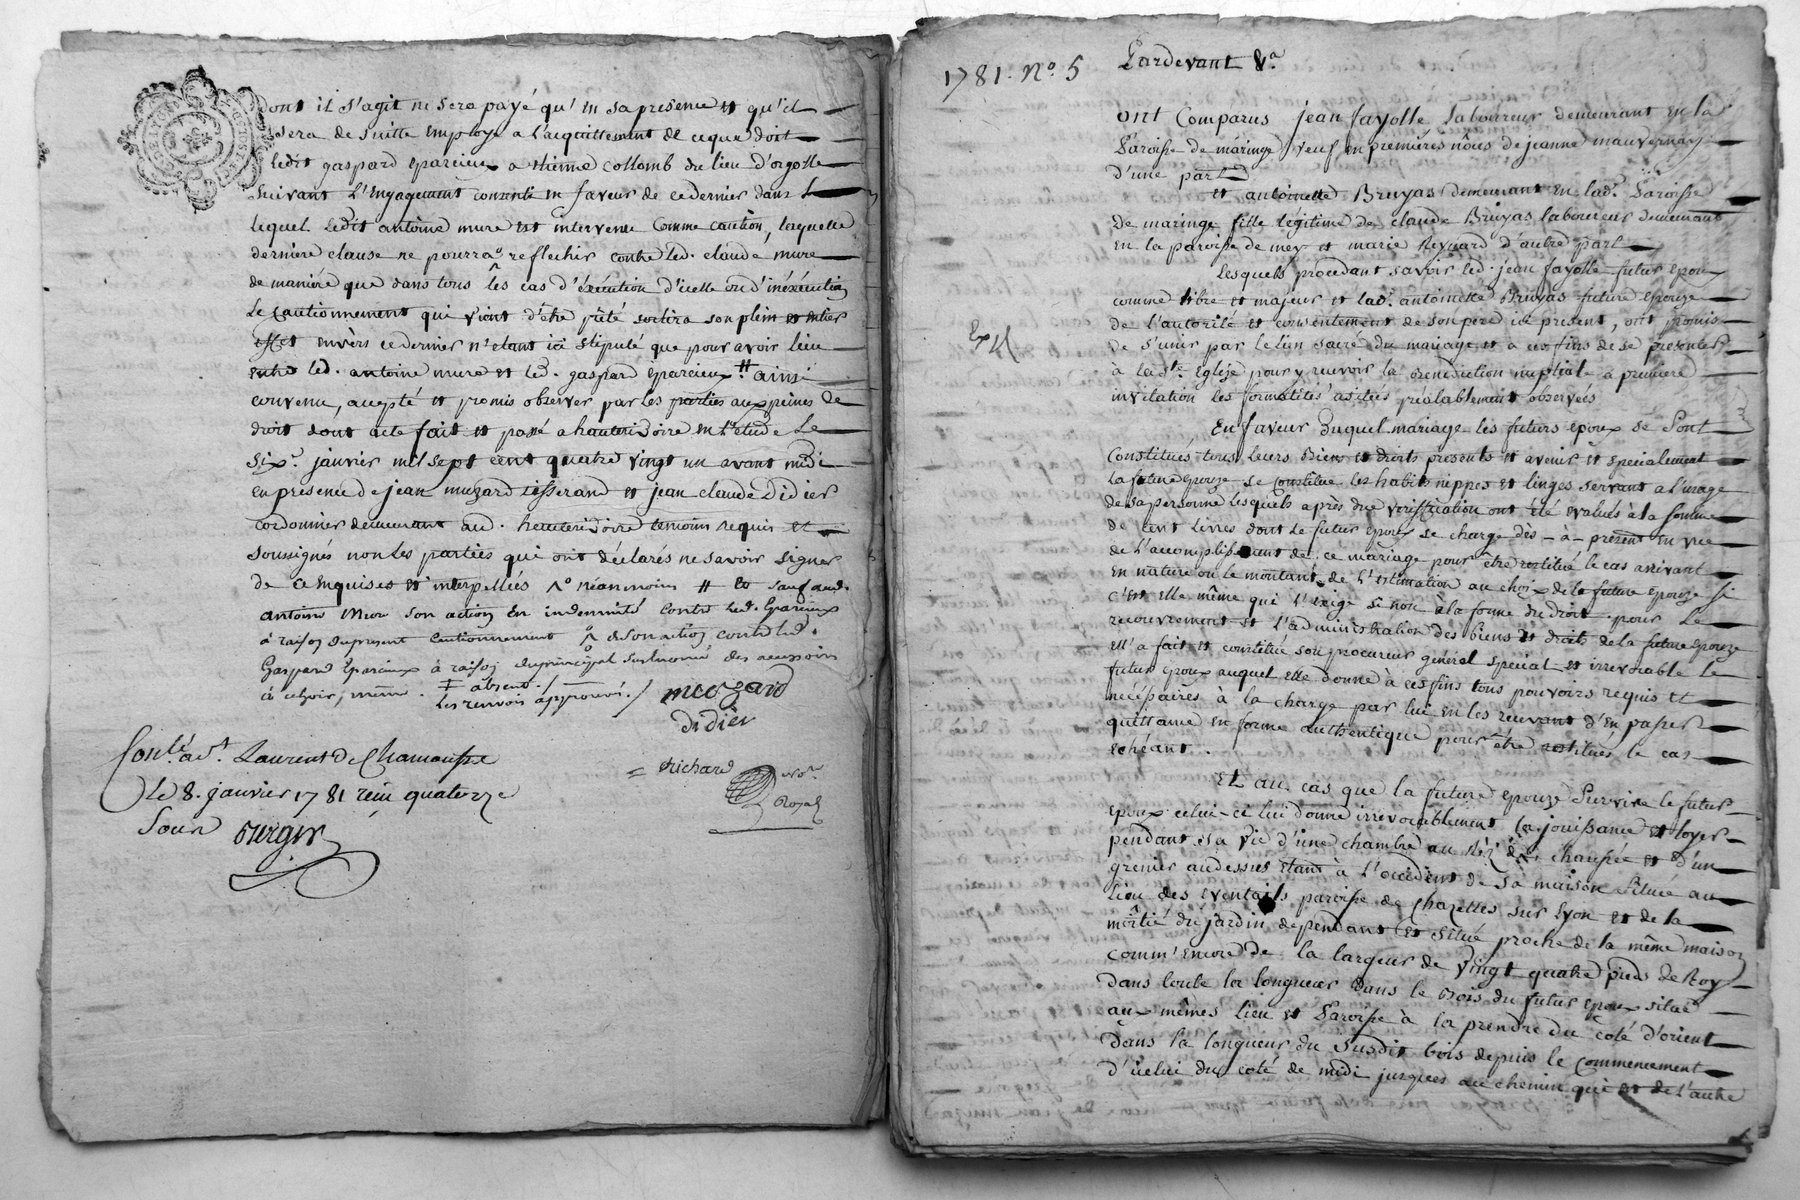 dont il s'agit ne sera payé qu'en sa presence et qu'il
sera de suitte employé a l'acquittement de ce que doit
ledit gaspard eparcieux a thienne collomb du lieu d'orgolle
suivant l'engagement consenti en faveur de ce dernier dans le
lequel ledit antoine mure est intervenu comme caution, lesquelle
derniere clause ne pourra reflechir contre led. claude mure
de maniére que dans tous les cas d'éxécution d'icelle ou d'inéxécution
le cautionnement qui vient d'être prêté sortira son plein et entier
effet envers ce dernier n'etant ici stipulé que pour avoir lieu
entre led. antoine mure et led. gaspard eparcieux # ainsi
convenu, accepté et promis observer par les parties aux peines de
droit dont acte fait et passé a hauterivoire en l'etude le
six. janvier mil sept cent quatre vingt un avant midi
en presence de jean muzard tisserand et jean claude didier
cordonnier demeurant aud. hauterivoire temoins requis et
soussignés non les parties qui ont déclarés ne savoir signer
de ce enquises et interpellées ^o néanmoins # et sauf aud.
antoine mure son action en indemnité contre led. Eparcieux
à raison du present cautionnement & son action contre led.
Gaspard Eparcieux à raison du principal susnommé des accessoires
à echoir, meme. ‡ absent./
les renvois approuvés./ meozard
didier
= Richard no.re
Royal
Con.lé à S.t Laurent de Chamousset
le 8. janvier 1781 reçu quatorze
sous Berger
1781. N.o 5 Pardevant &.a
ont comparus jean fayolle laboureur demeurant en la
Paroisse de maringe veuf en premières nôces de jeanne mauvernay
d'une part
et antoinette Bruyas demeurant en lad.e Paroisse
de maringe fille légitime de claude Bruyas laboureur demeurant
en la paroisse de mey et marie Reynard d'autre part
Lesquels procedant savoir led. jean fayolle futur epoux
comme libre et majeur et lad.e antoinette Bruyas future epouze
de l'autorité et consentement de son pere ici present, ont promis
de s'unir par le lien sacré du mariage et a ces fins de se presenter
à la S.te Eglize pour y recevoir la benediction nuptiale à première
invitation les formalités usitées préalablement observées
En faveur duquel mariage les futurs epoux se sont
Constitués tous leurs Biens et droits presents et avenir et specialement
la future epouze se constitue les habits nippes et linges servant a l'usage
de sa personne lesquels après due verification ont été evalués à la somme
de cent livres dont le futur epoux se charge dès-à-présent en vue
de l'accomplissement de ce mariage pour être restitué le cas arrivant
en nature ou le montant de l'estimation au choix de la future epouze si
c'est elle même qui l'exige si non à la forme du droit pour le
recouvrement et l'administration des biens et droits de la future epouze
ell'a fait et constitué son procureur général special et irrévocable le
futur epoux auquel elle donne a ces fins tous pouvoirs requis et
necessaires à la charge par lui en les recevant d'en passer
quittance en forme authentique pour être restitués le cas
echéant.
Et au cas que la future epouze survive le futur
epoux celui-ci lui donne irrevocablement la jouissance et loyer
pendant sa vie d'une chambre au réz de chaussée et d'un
grenier audessus etant à l'occident de sa maison située au
lieu des eventails paroisse de Chazelles sur Lyon et de la
môitié du jardin dependant et situé proche de la même maison
comm'encore de la largeur de vingt quatre pieds de Roy
dans toute la longueur dans le Bois du futur epoux situé
aux mêmes lieu et Paroisse à la prendre du coté d'orient
dans la longueur du susdit bois depuis le commencement
d'icelui du coté de midi jusques au chemin qui est de l'autre